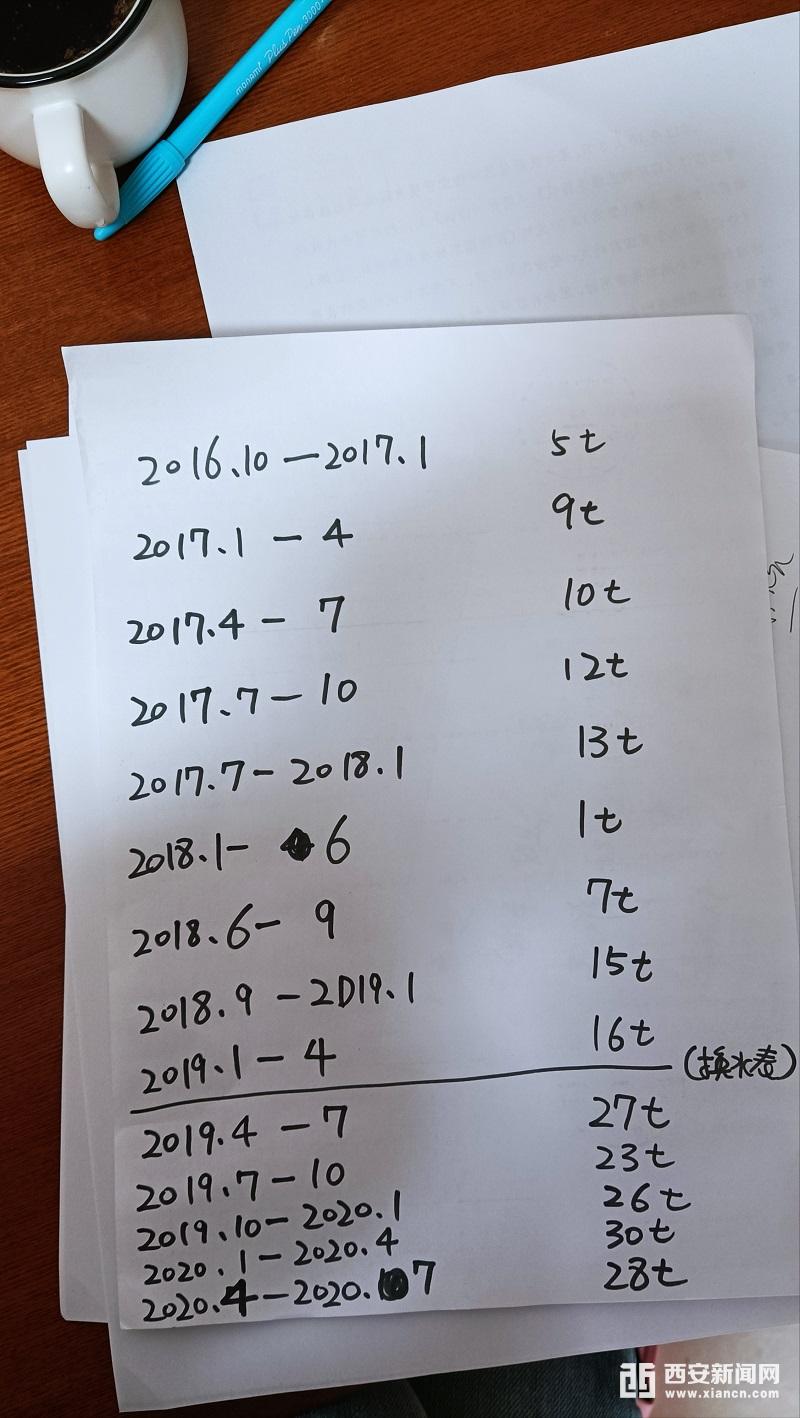 monami Plus Pen 3000
2016.10—2017.1 5t
2017.1 - 4 9t
2017.4 - 7 10t
2017.7 - 10 12t
2017.7 - 2018.1 13t
2018.1 - 6 1t
2018.6 - 9 7t
2018.9 - 2019.1 15t
2019.1 - 4 16t
(换水表)
2019.4 - 7 27t
2019.7 - 10 23t
2019.10 - 2020.1 26t
2020.1 - 2020.4 30t
2020.4 - 2020.7 28t
西安新闻网
www.xiancn.com